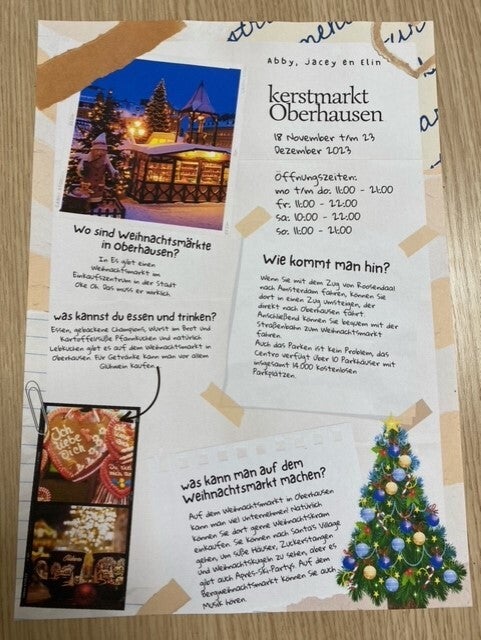 Abby, Jacey en Elin
kerstmarkt
Oberhausen
18 November t/m 23
Dezember 2023
Öffnungszeiten:
mo t/m do: 11:00 - 21:00
fr: 11:00 - 22:00
sa: 10:00 - 22:00
so: 11:00 - 21:00
Wo sind Weihnachtsmärkte
in Oberhausen?
In Es gibt einen
Weihnachtsmarkt im
Einkaufszentrum in der Stadt
Oke Ok. Das muss er wirklich.
Wie kommt man hin?
Wenn Sie mit dem Zug von Roosendaal
nach Amsterdam fahren, können Sie
dort in einen Zug umsteigen, der
direkt nach Oberhausen fährt.
Anschließend können Sie bequem mit der
Straßenbahn zum Weihnachtsmarkt
fahren.
Auch das Parken ist kein Problem, das
Centro verfügt über 10 Parkhäuser mit
insgesamt 14.000 kostenlosen
Parkplätzen.
was kannst du essen und trinken?
Essen, gebackene Champions, Wurst im Brot und
Kartoffelsüße Pfannkuchen und natürlich
Lebkuchen gibt es auf dem Weihnachtsmarkt in
Oberhausen. Für Getränke kann man vor allem
Glühwein kaufen.
Ich
liebe
Dich
was kann man auf dem
Weihnachtsmarkt machen?
Auf dem Weihnachtsmarkt in Oberhausen
kann man viel unternehmen! Natürlich
können Sie dort gerne Weihnachtskram
einkaufen. Sie können nach Santa's Village
gehen, um süße Häuser, Zuckerstangen
und Weihnachtskugeln zu sehen, aber es
gibt auch Après-Ski-Partys. Auf dem
Bergweihnachtsmarkt können Sie auch
Musik hören.